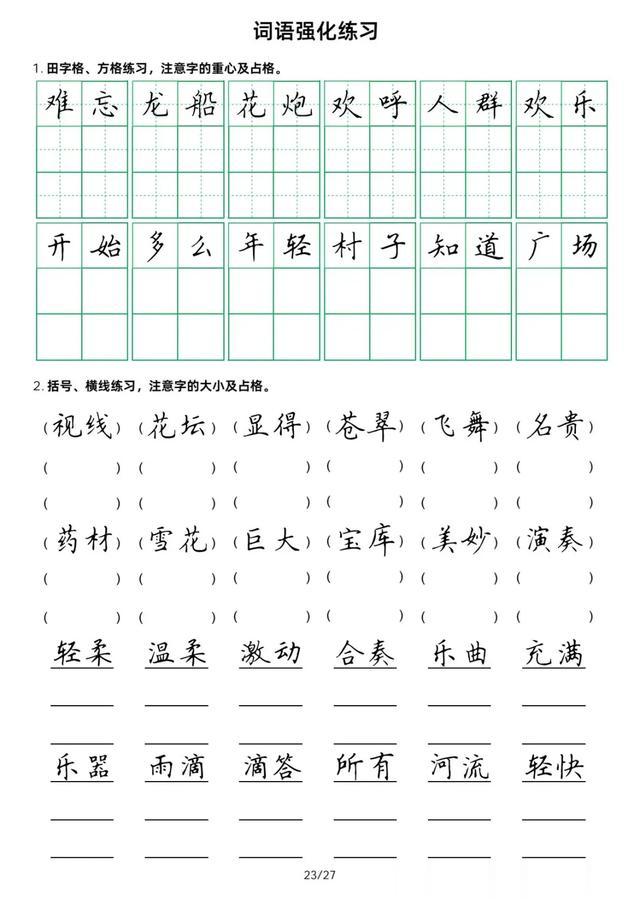 词语强化练习
1. 田字格、方格练习，注意字的重心及占格。
难忘 龙船 花炮 欢呼 人群 欢乐
开始 多么 年轻 村子 知道 广场
2. 括号、横线练习，注意字的大小及占格。
(视线) (花坛) (显得) (苍翠) (飞舞) (名贵)
( ) ( ) ( ) ( ) ( ) ( )
( ) ( ) ( ) ( ) ( ) ( )
(药材) (雪花) (巨大) (宝库) (美妙) (演奏)
( ) ( ) ( ) ( ) ( ) ( )
( ) ( ) ( ) ( ) ( ) ( )
轻柔 温柔 激动 合奏 乐曲 充满
乐器 雨滴 滴答 所有 河流 轻快
23/27